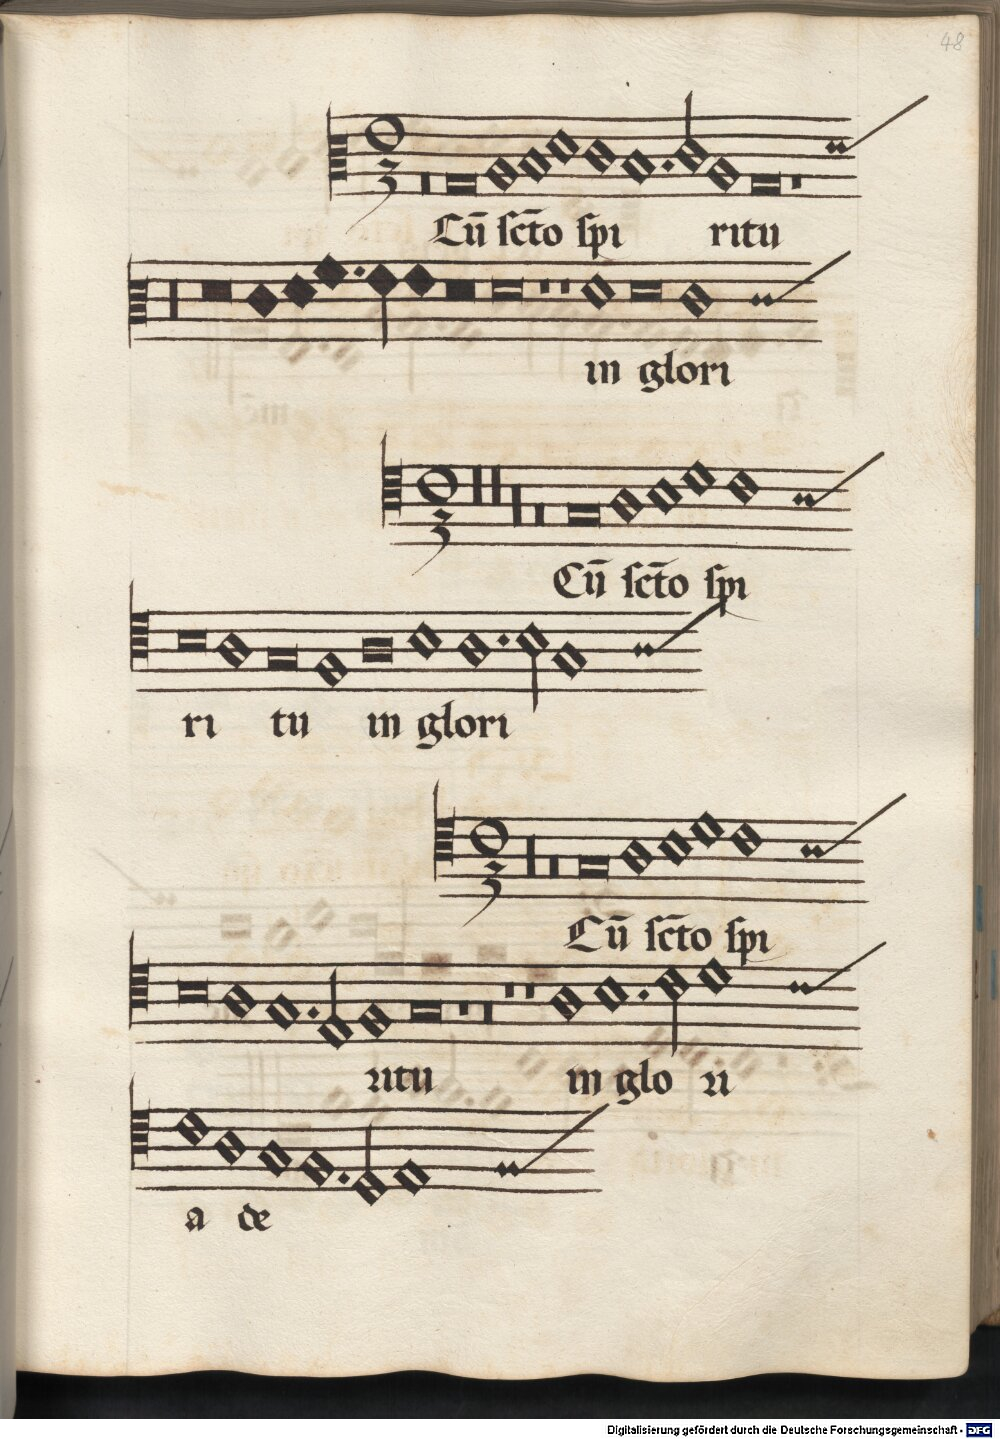 48
Cū sc̄to spi ritu
in glori
Cū sc̄to spi
ri tu in glori
Cū sc̄to spi
ritu in glo ri
a de
Digitalisierung gefördert durch die Deutsche Forschungsgemeinschaft - DFG